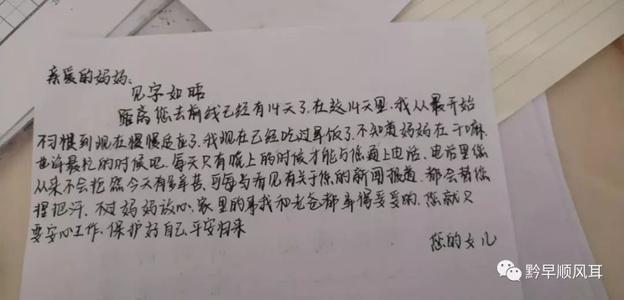 亲爱的妈妈:
见字如晤
距离您去前线已经有14天了.在这14天里.我从最开始
不习惯到现在慢慢适应了.我现在已经吃过早饭了.不知道妈妈在干嘛
也许最忙的时候吧.每天只有晚上的时候才能与您通上电话.电话里您
从来不会抱怨今天有多辛苦.可每当看见有关于您的新闻报道.都会替您
捏把汗.不过妈妈放心.家里的事我和老爸都弄得妥妥的.您就只
要安心工作.保护好自己.平安归来
您的女儿
黔早顺风耳